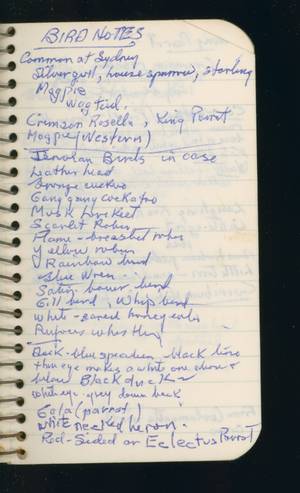 BIRD NOTES
Common at Sydney
Silver gull, house sparrow, starling
Magpie
Wagtail.
Crimson Rosella, King Parrot
Magpie (Western)
Birds in case
Leather head
cuckoo
Gang gang cockatoo
Musk Lorikeet
Scarlet Robin
Flame-breasted robin
Yellow robin
Rainbow bird
Blue Wren
Satin bower bird
Gill bird, Whip bird
White-eared honey eater
Rufous whistler
Duck - blue speculum - black line
thru eye makes a white one above &
below Black duck
White eye - grey down back
Gala (parrot)
White necked heron.
Red-Sided or Eclectus Parrot